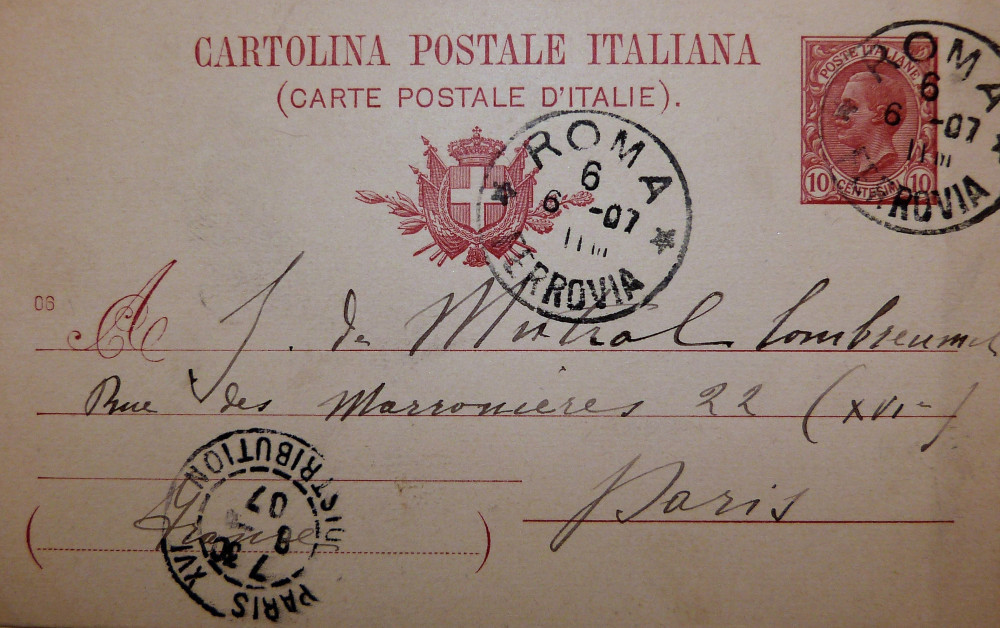 CARTOLINA POSTALE ITALIANA
(CARTE POSTALE D'ITALIE).
POSTE ITALIANE
10 CENTESIMI 10
ROMA
6
6 -07
FERROVIA
ROMA
6
6 -07
FERROVIA
06
A J. de Mistral Combremont
Rue des Marronieres 22 (XVIe)
Paris
France
PARIS XVI DISTRIBUTION
07